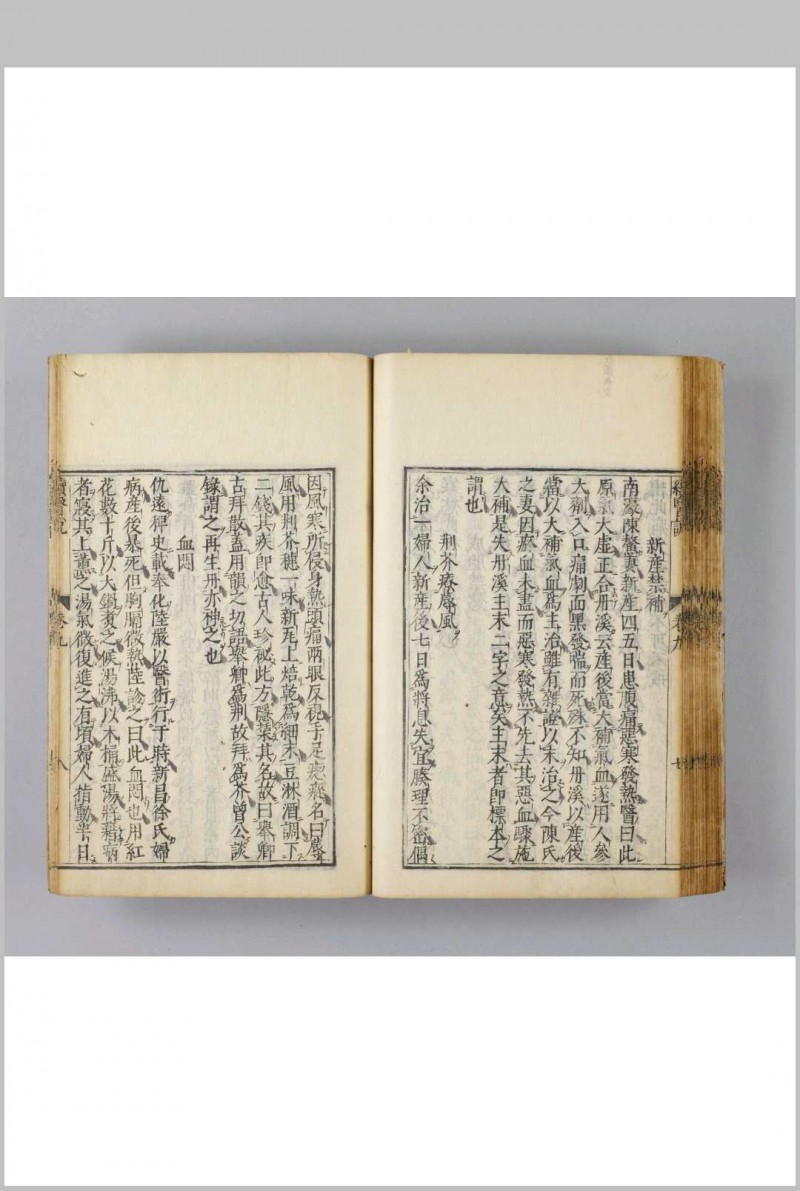 新産禁補
南濠陳鰲妻新産四五日患腹痛惡寒發熱醫曰此
原氣大虚正合丹溪云産後當大補氣血遂用人參
大劑入口痛劇面黑發喘而死殊不知丹溪以産後
當以大補氣血爲主治雖有雜證以末治之今陳氏
之妻因瘀血未盡而惡寒發熱不先去其惡血驟施
大補是失丹溪主末二字之意矣主末者即標本之
謂也
荆芥療蓐風
余治一婦人新産後七日爲將息失宜腠理不密偶
因風寒所侵身熱頭痛兩眼反視手足瘛瘲名曰蓐
風用荆芥穗一味新瓦上焙乾爲細末豆淋酒調下
二錢其疾即愈古人珍祕此方隱其名故曰舉卿
古拜散蓋用韻之切語舉卿爲荆故拜爲芥曾公談
錄謂之再生丹亦神之也
血悶
仇遠稗史載奉化陸嚴以醫術行于時新昌徐氏婦
病産後暴死但胸膈微熱陸診之曰此血悶也用紅
花數十斤以大鍋煮之候湯沸以木桶盛湯將藉病
者寢其上薫之湯氣微復進之有頃婦人指動半日
續醫説 卷九 八
卷九 七